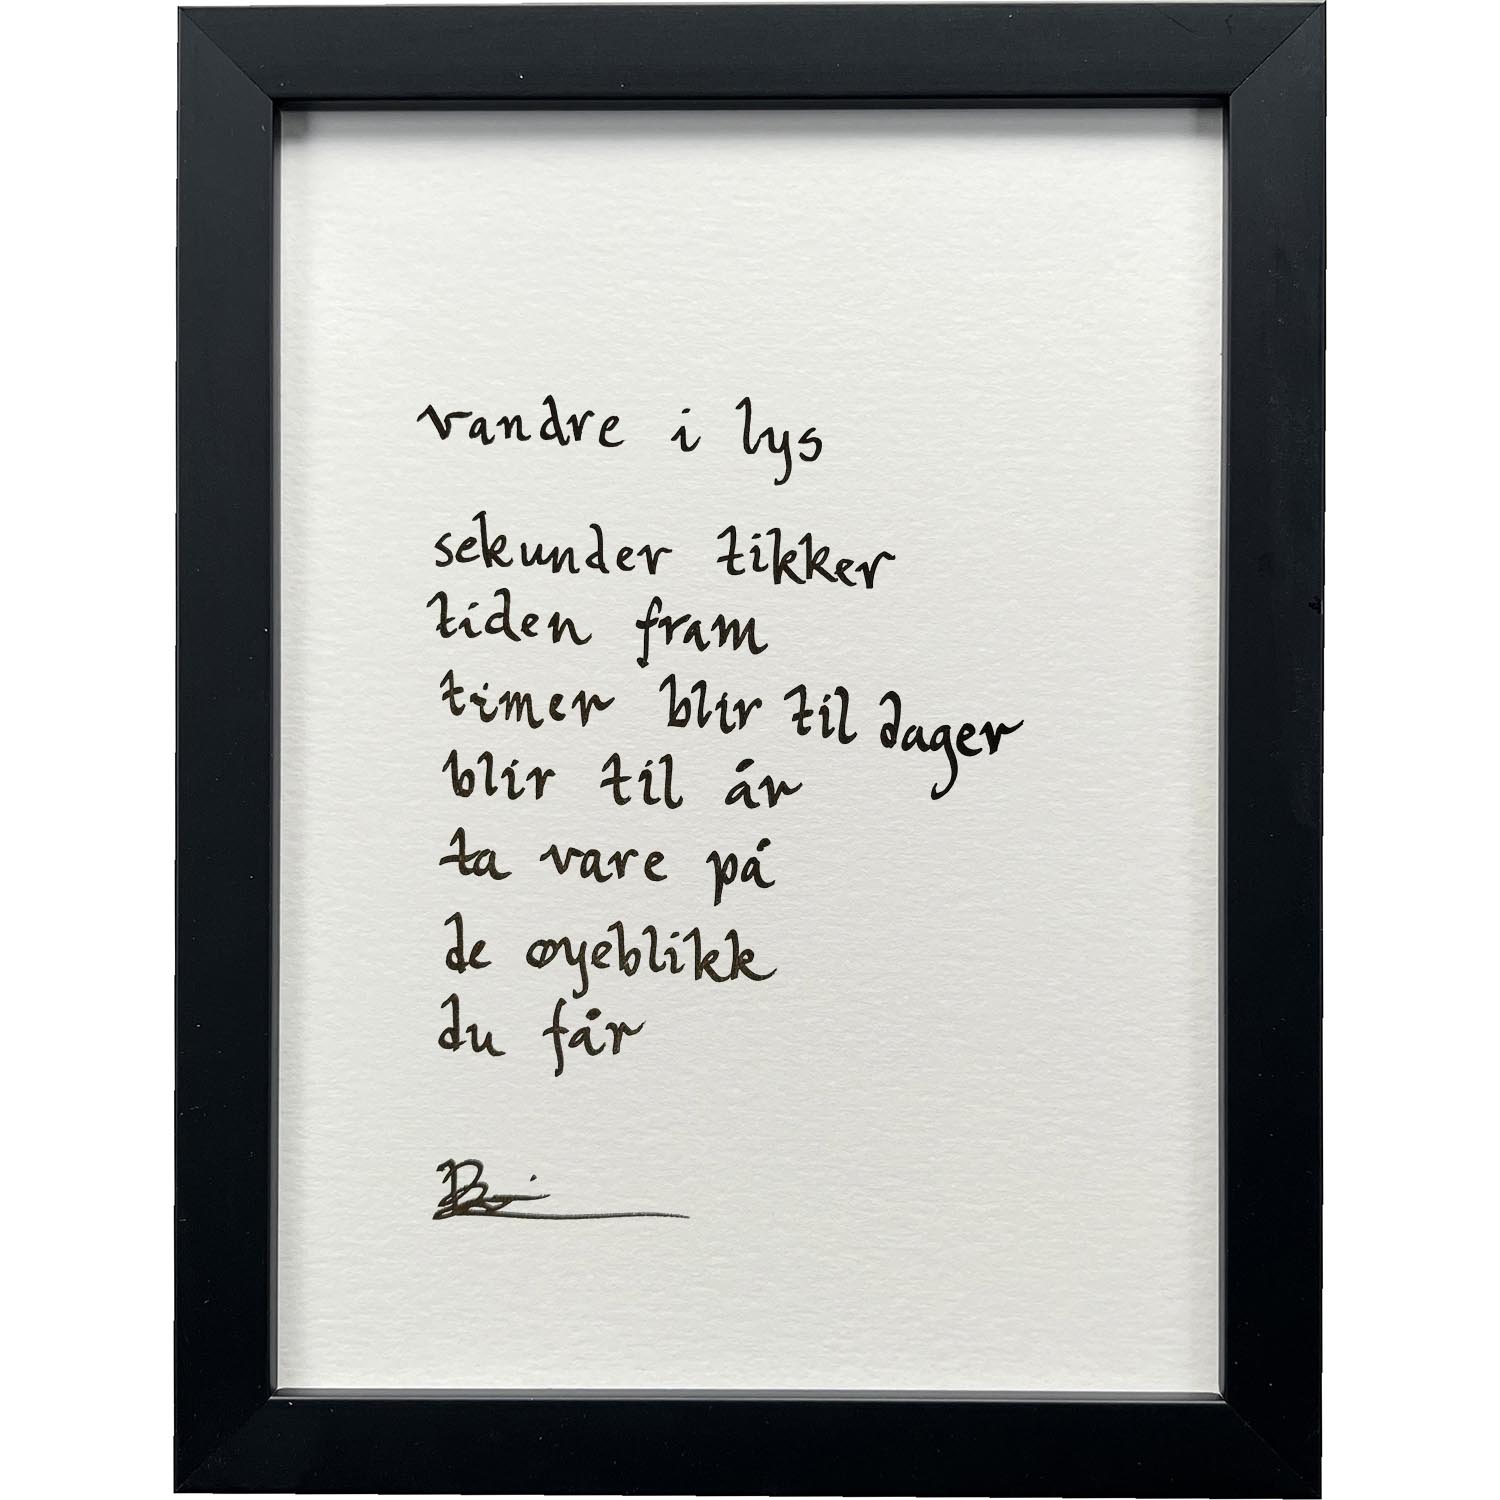 vandre i lys
sekunder tikker
tiden fram
timer blir til dager
blir til år
ta vare på
de øyeblikk
du får